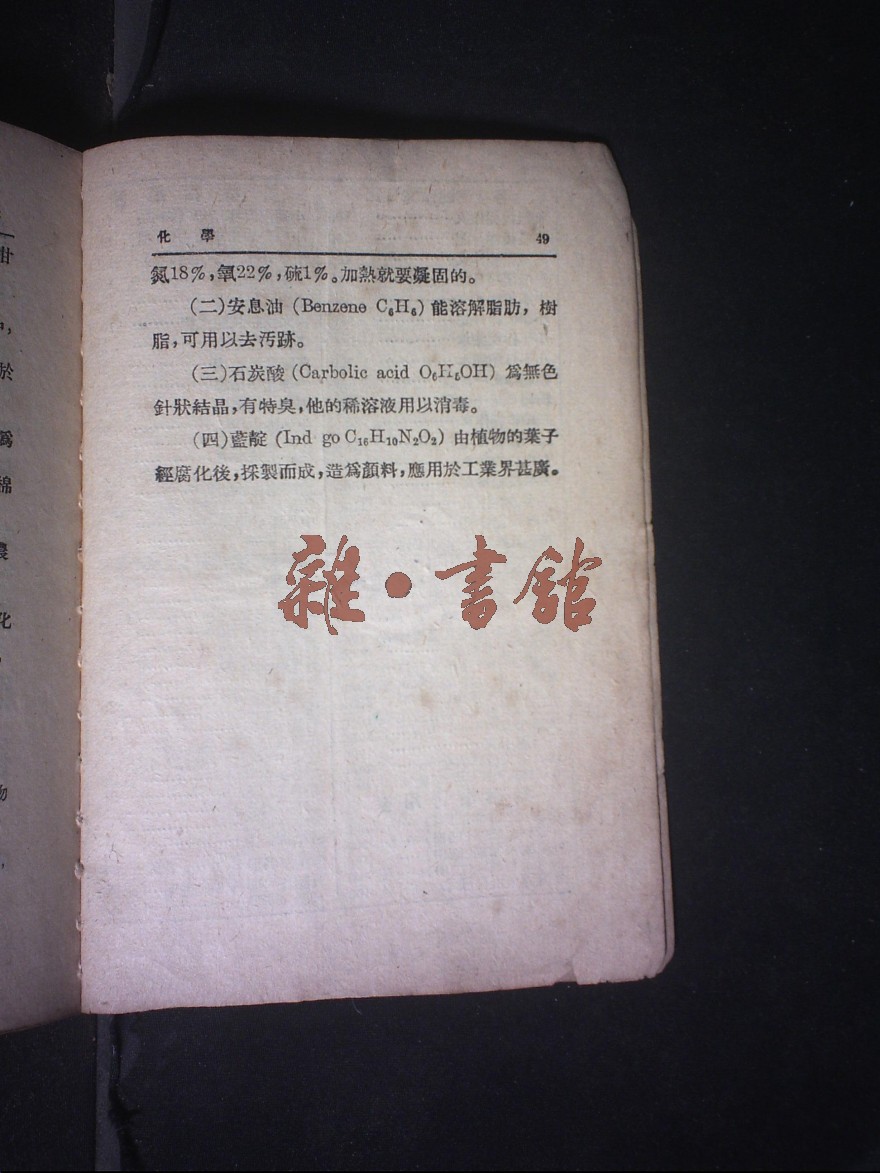 化 學 49
氮18%,氧22%,硫1%。加熱就要凝固的。
(二)安息油 (Benzene C₆H₆) 能溶解脂肪, 樹
脂,可用以去汚跡。
(三)石炭酸 (Carbolic acid O₆H₅OH) 爲無色
針狀結晶,有特臭,他的稀溶液用以消毒。
(四)藍靛 (Ind go C₁₆H₁₀N₂O₂) 由植物的葉子
經腐化後,採製而成,造爲顏料,應用於工業界甚廣。
雜·書舘
甘
於
爲
棉
化
物